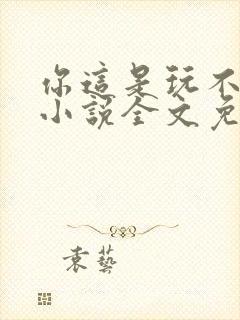 你這是玩不
小說全文免
袁藝